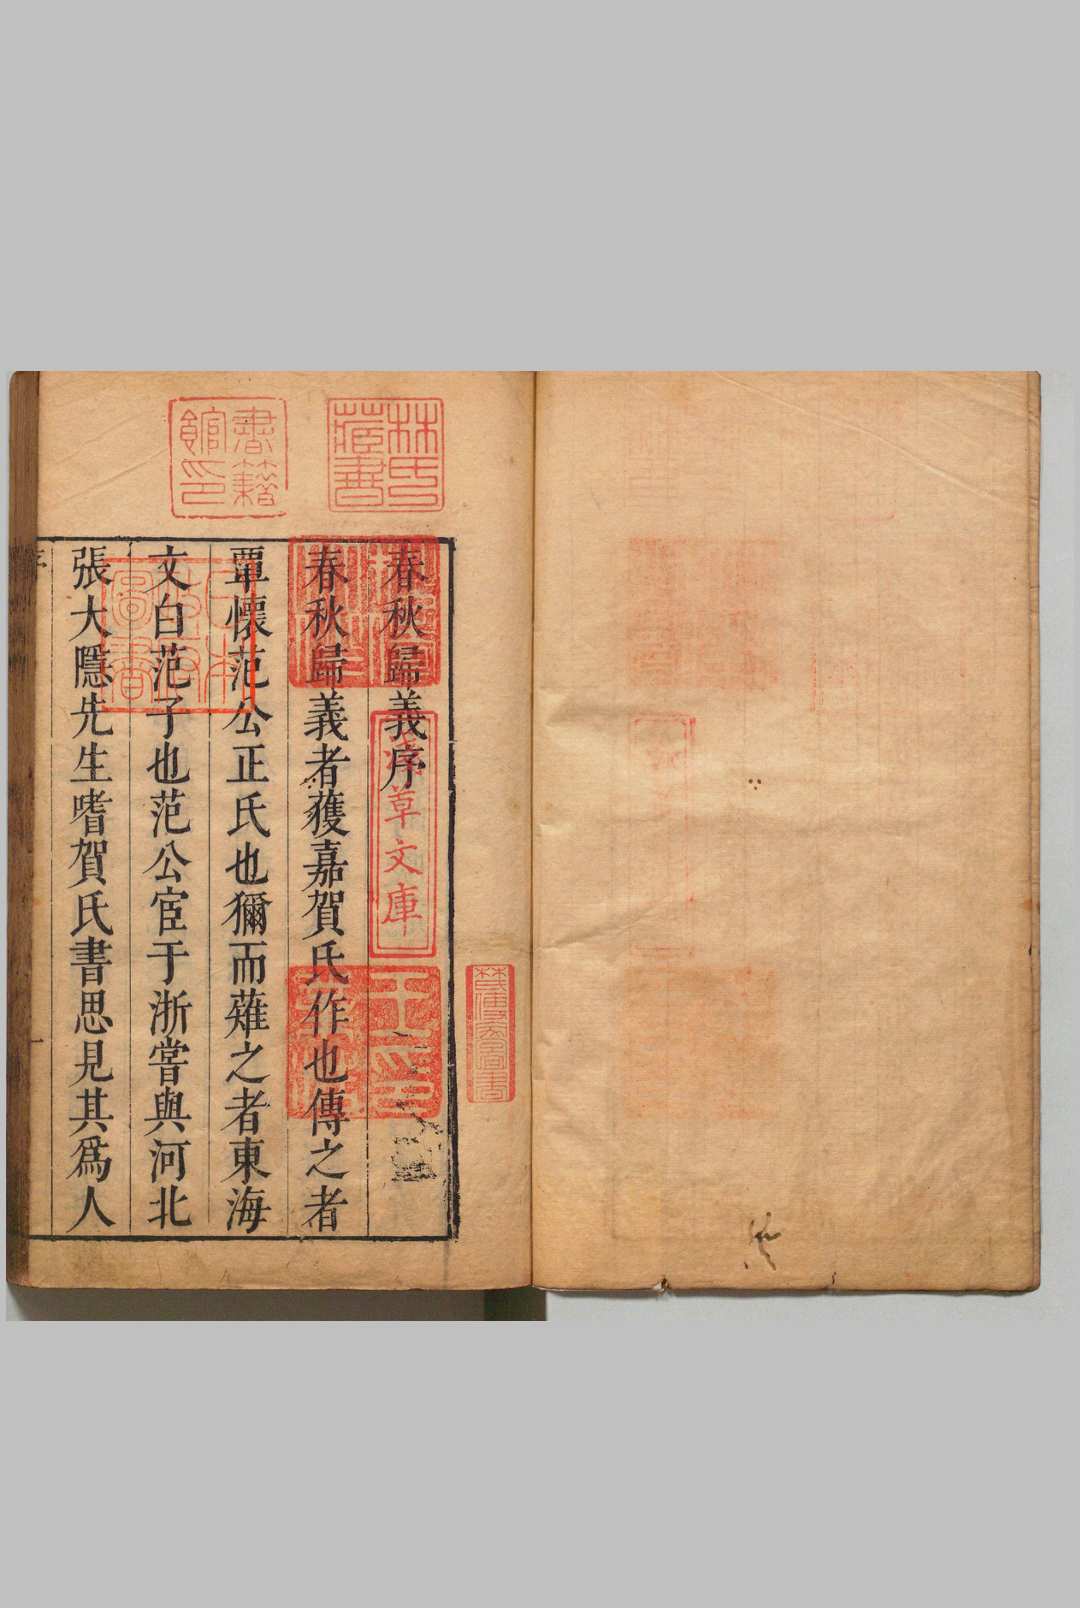 春秋歸義序
春秋歸義者蒦嘉賀氏作也傳之者
覃懷范公正氏也獮而薙之者東海
文白范子也范公宦于浙嘗與河北
張大隱先生嗜賀氏書思見其爲人
序
一
林氏
藏書
書籍
館印
淺草文庫
日本
政府
圖書